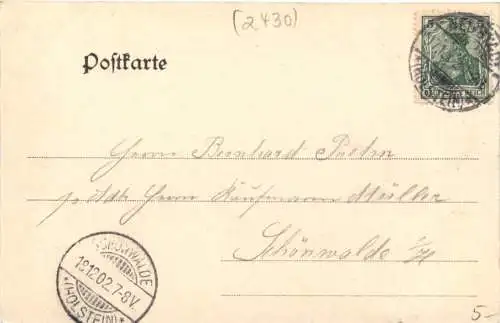 (2430)
Postkarte
5
Herrn Bernhard
p. Adr. Herrn Kaufmann Müller
Schönwalde i/H
SCHÖNWALDE
18.12.02.7-8V.
*(HOLSTEIN)*
5-